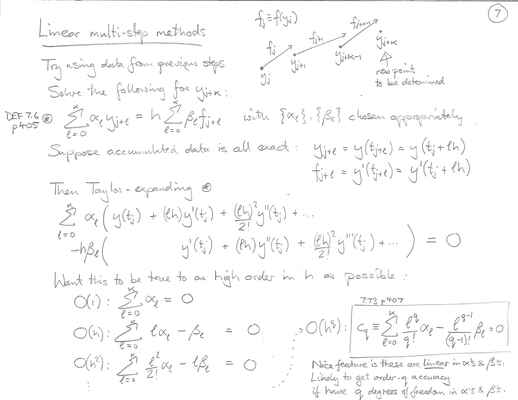 7
Linear multi-step methods
fⱼ ≡ f(yⱼ)
fⱼ fⱼ₊₁ fⱼ₊ₖ₋₁
yⱼ yⱼ₊₁ yⱼ₊ₖ₋₁ yⱼ₊ₖ
new point
to be determined
Try using data from previous steps
Solve the following for yⱼ₊ₖ:
DEF 7.6
p405
⊛ Σ_{ℓ=0}^{κ} α_ℓ y_{j+ℓ} = h Σ_{ℓ=0}^{κ} β_ℓ f_{j+ℓ} with {α_ℓ}, {β_ℓ} chosen appropriately
Suppose accumulated data is all exact: y_{j+ℓ} = y(t_{j+ℓ}) = y(t_j + ℓh)
f_{j+ℓ} = y'(t_{j+ℓ}) = y'(t_j + ℓh)
Then Taylor-expanding ⊛
Σ_{ℓ=0}^{κ} α_ℓ ( y(t_j) + (ℓh)y'(t_j) + (ℓh)²/2! y''(t_j) + ...
-hβ_ℓ ( y'(t_j) + (ℓh)y''(t_j) + (ℓh)²/2! y'''(t_j) + ... ) = 0
Want this to be true to as high order in h as possible:
O(1): Σ_{ℓ=0}^{κ} α_ℓ = 0
O(h): Σ_{ℓ=0}^{κ} ℓα_ℓ - β_ℓ = 0
O(h²): Σ_{ℓ=0}^{κ} ℓ²/2! α_ℓ - ℓβ_ℓ = 0
7.73 p407
O(h^q): C_q ≡ Σ_{ℓ=0}^{κ} ℓ^q/q! α_ℓ - ℓ^{q-1}/(q-1)! β_ℓ = 0
Nice feature is these are linear in α's & β's.
Likely to get order-q accuracy
if have q degrees of freedom in α's & β's.